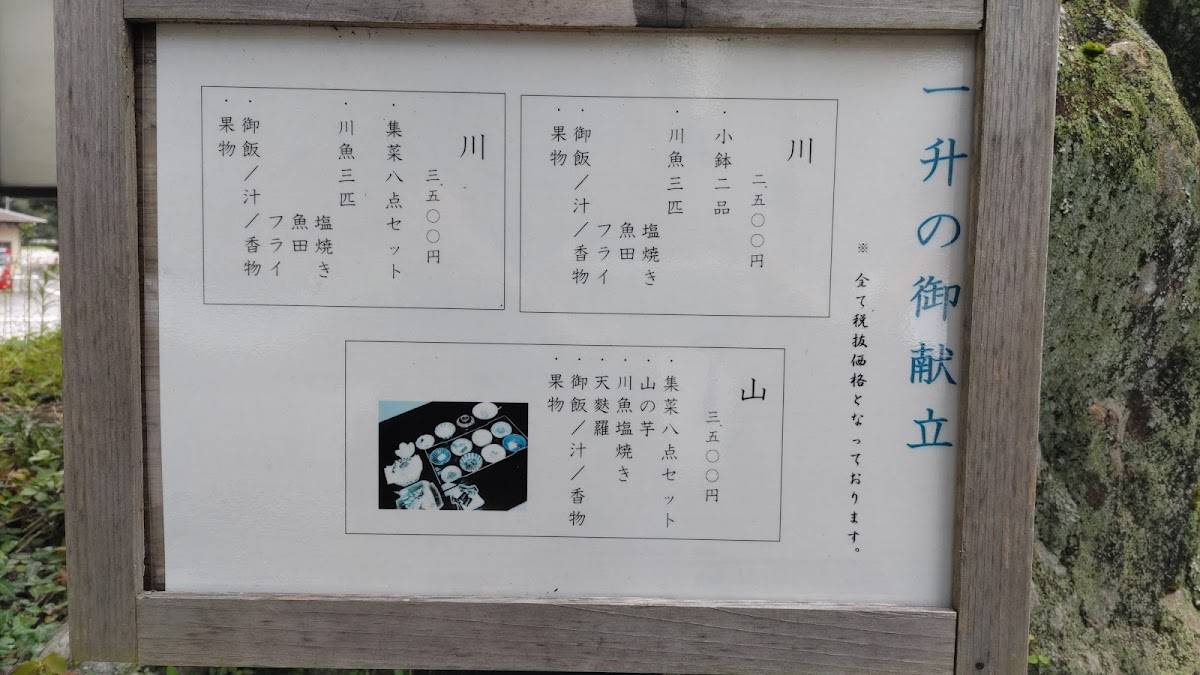 一升の御献立
※ 全て税抜価格となっております。
川
二、五〇〇円
・小鉢二品
・川魚三匹
塩焼き
魚田
フライ
・御飯／汁／香物
・果物
川
三、五〇〇円
・集菜八点セット
・川魚三匹
塩焼き
魚田
フライ
・御飯／汁／香物
・果物
山
三、五〇〇円
・集菜八点セット
・山の芋
・川魚塩焼き
・天麩羅
・御飯／汁／香物
・果物